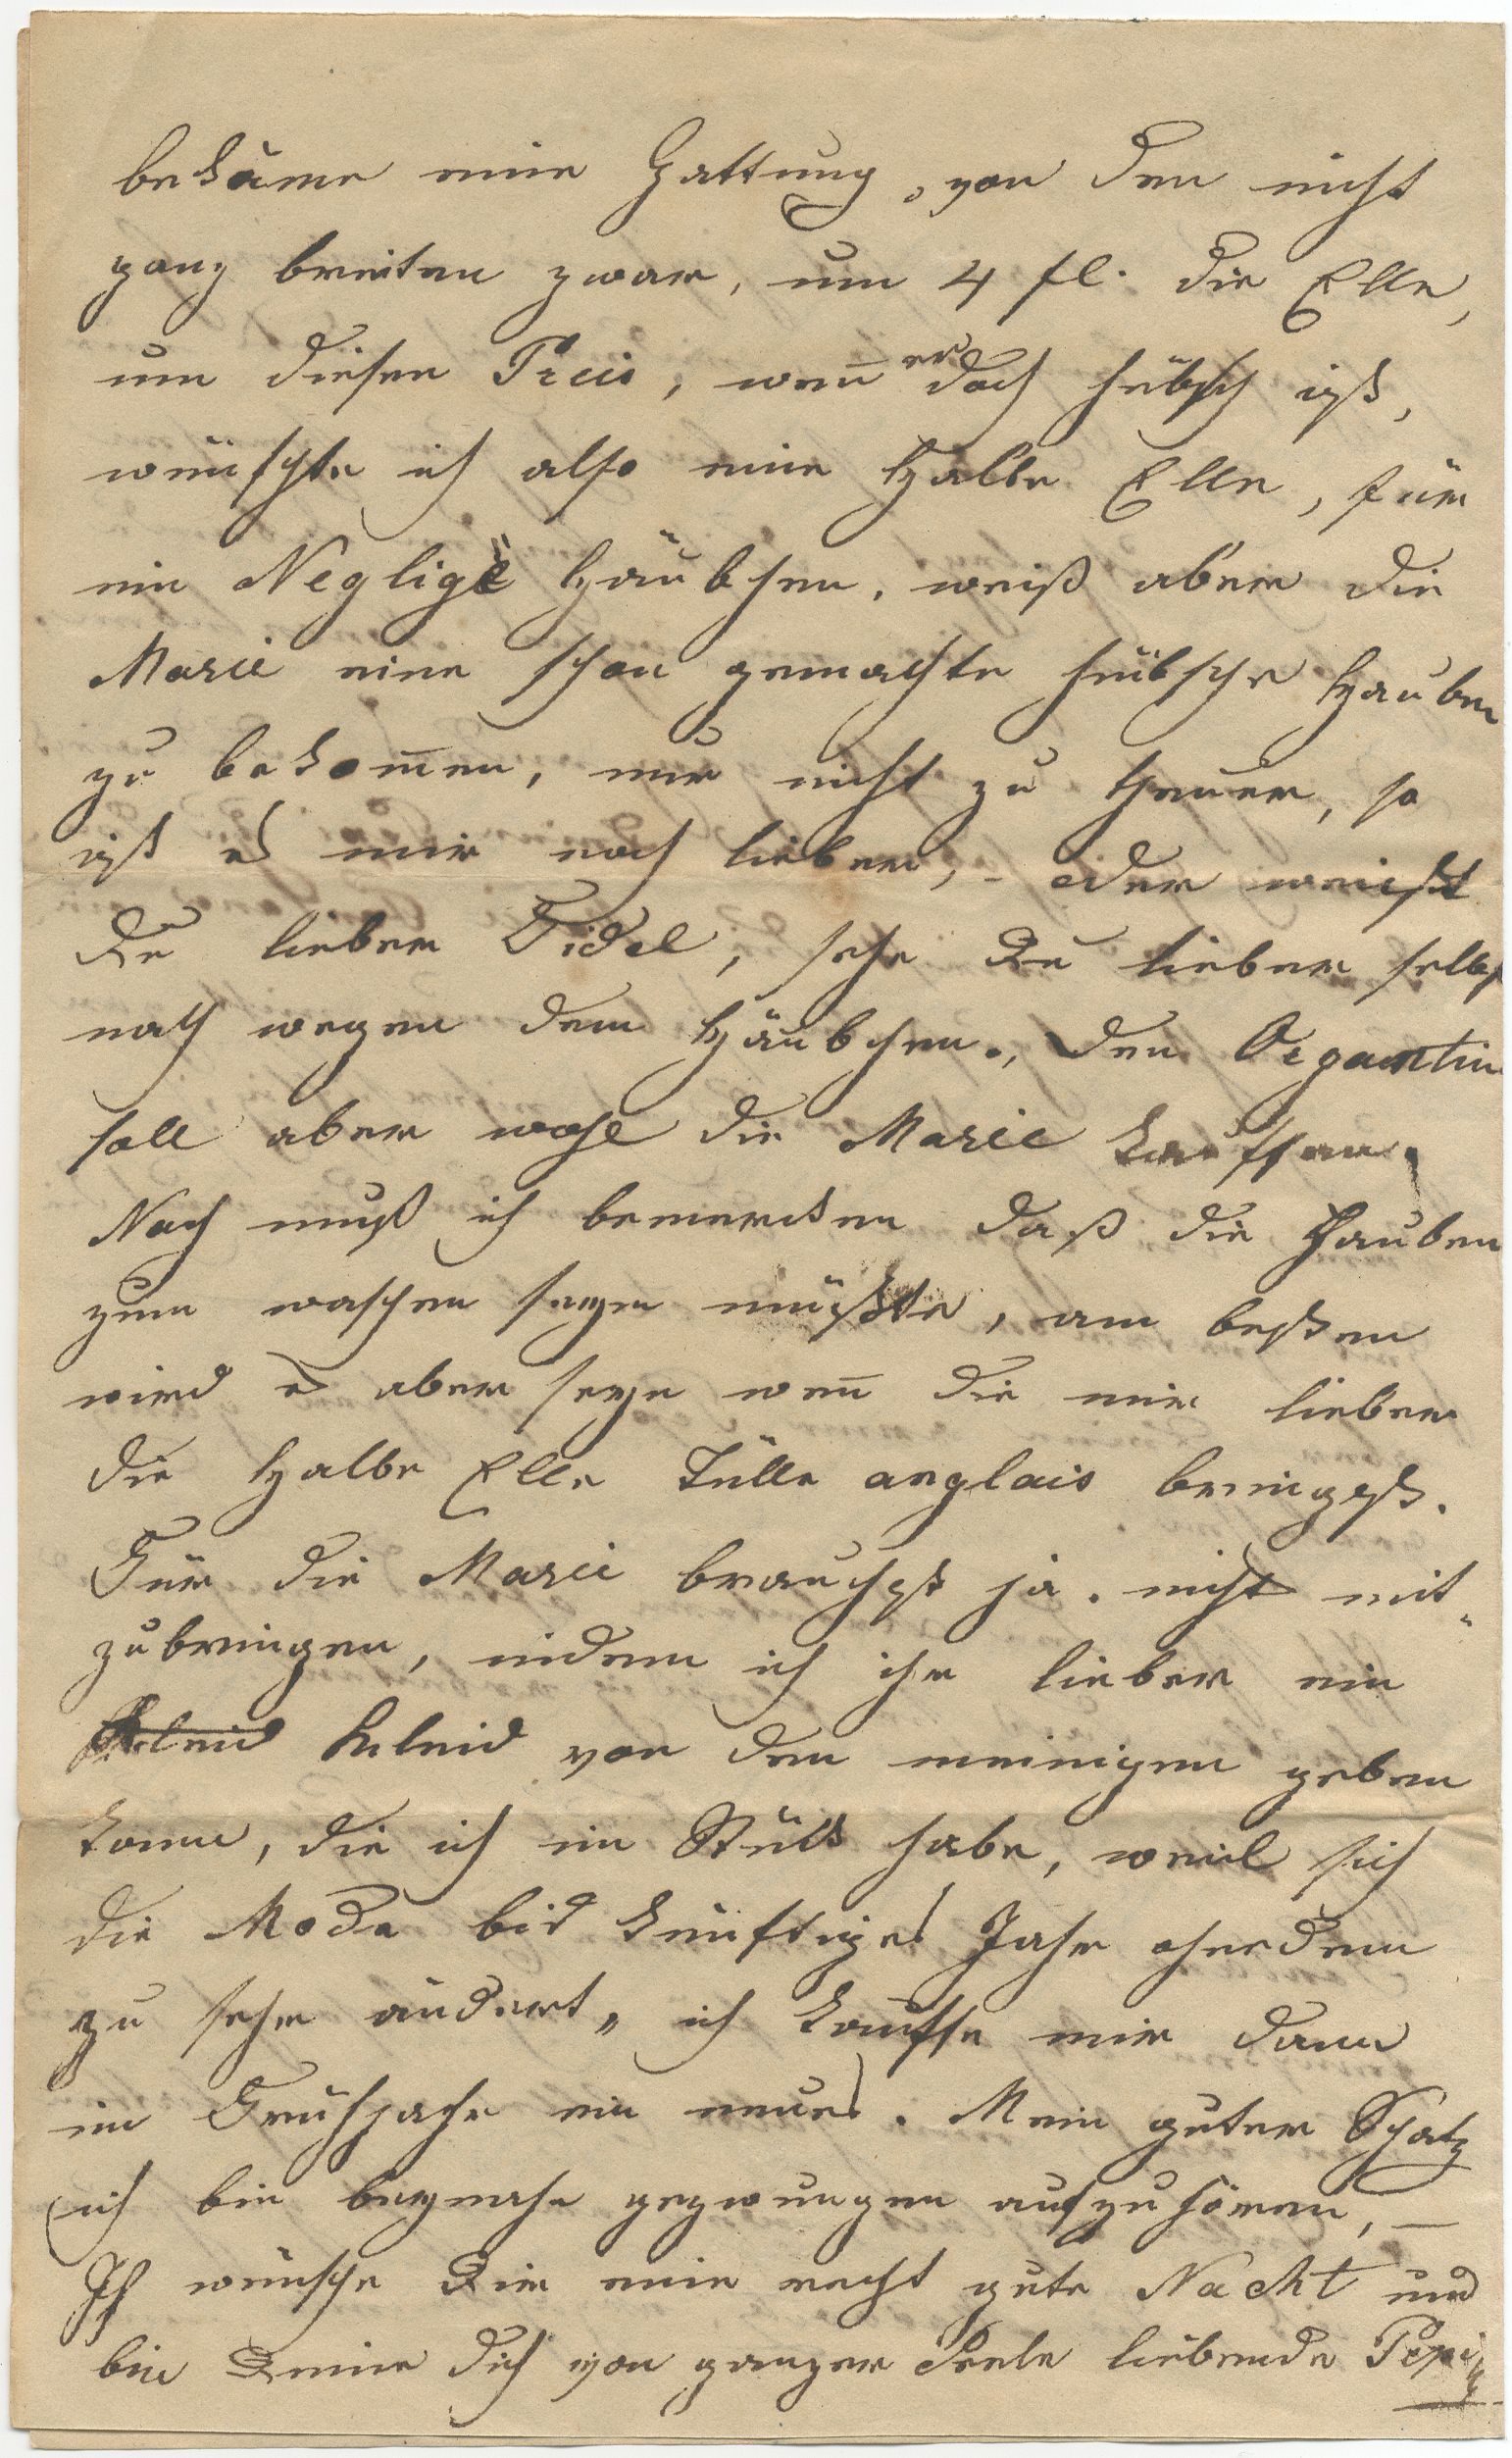 bekäme eine Gattung, von den nicht
ganz breiten zwar, um 4 fl. die Elle,
um diesen Preis, weñ er doch hübsch ist,
wünschte ich also eine Halbe Elle, für
ein Negligè Häubchen. weiß aber die
Marie eine schon gemachte hübsche Hauben
zu bekom̄en, nur nicht zu theuer, so
ist es mir noch lieber, – oder weißt
Du lieber Fidel, sehe Du lieber selbst
nach wegen dem Häubchen., den Organtin
soll aber wohl die Marie kauffen.
Noch muß ich bemerken daß die Hauben
zum waschen seyn müßte, am besten
wird es aber seyn weñ Du mir lieber
die Halbe Elle Tülle anglais bringst.
Für die Marie brauchst ja. nicht mit„
zubringen, indem ich ihr lieber ein
Kleid Kleid von den meinigen geben
kann, die ich im Stück habe, weil sich
die Mode bis künftiges Jahr ohnedem
zu sehr ändert, ich kauffe mir dann
im Frühjahr ein neues. Mein guter Schatz
ich bin beynahe gezwungen aufzuhören, –
Ich wünsche Dir eine recht gute Nacht und
bin Deine dich von ganzer Seele liebende Pepi